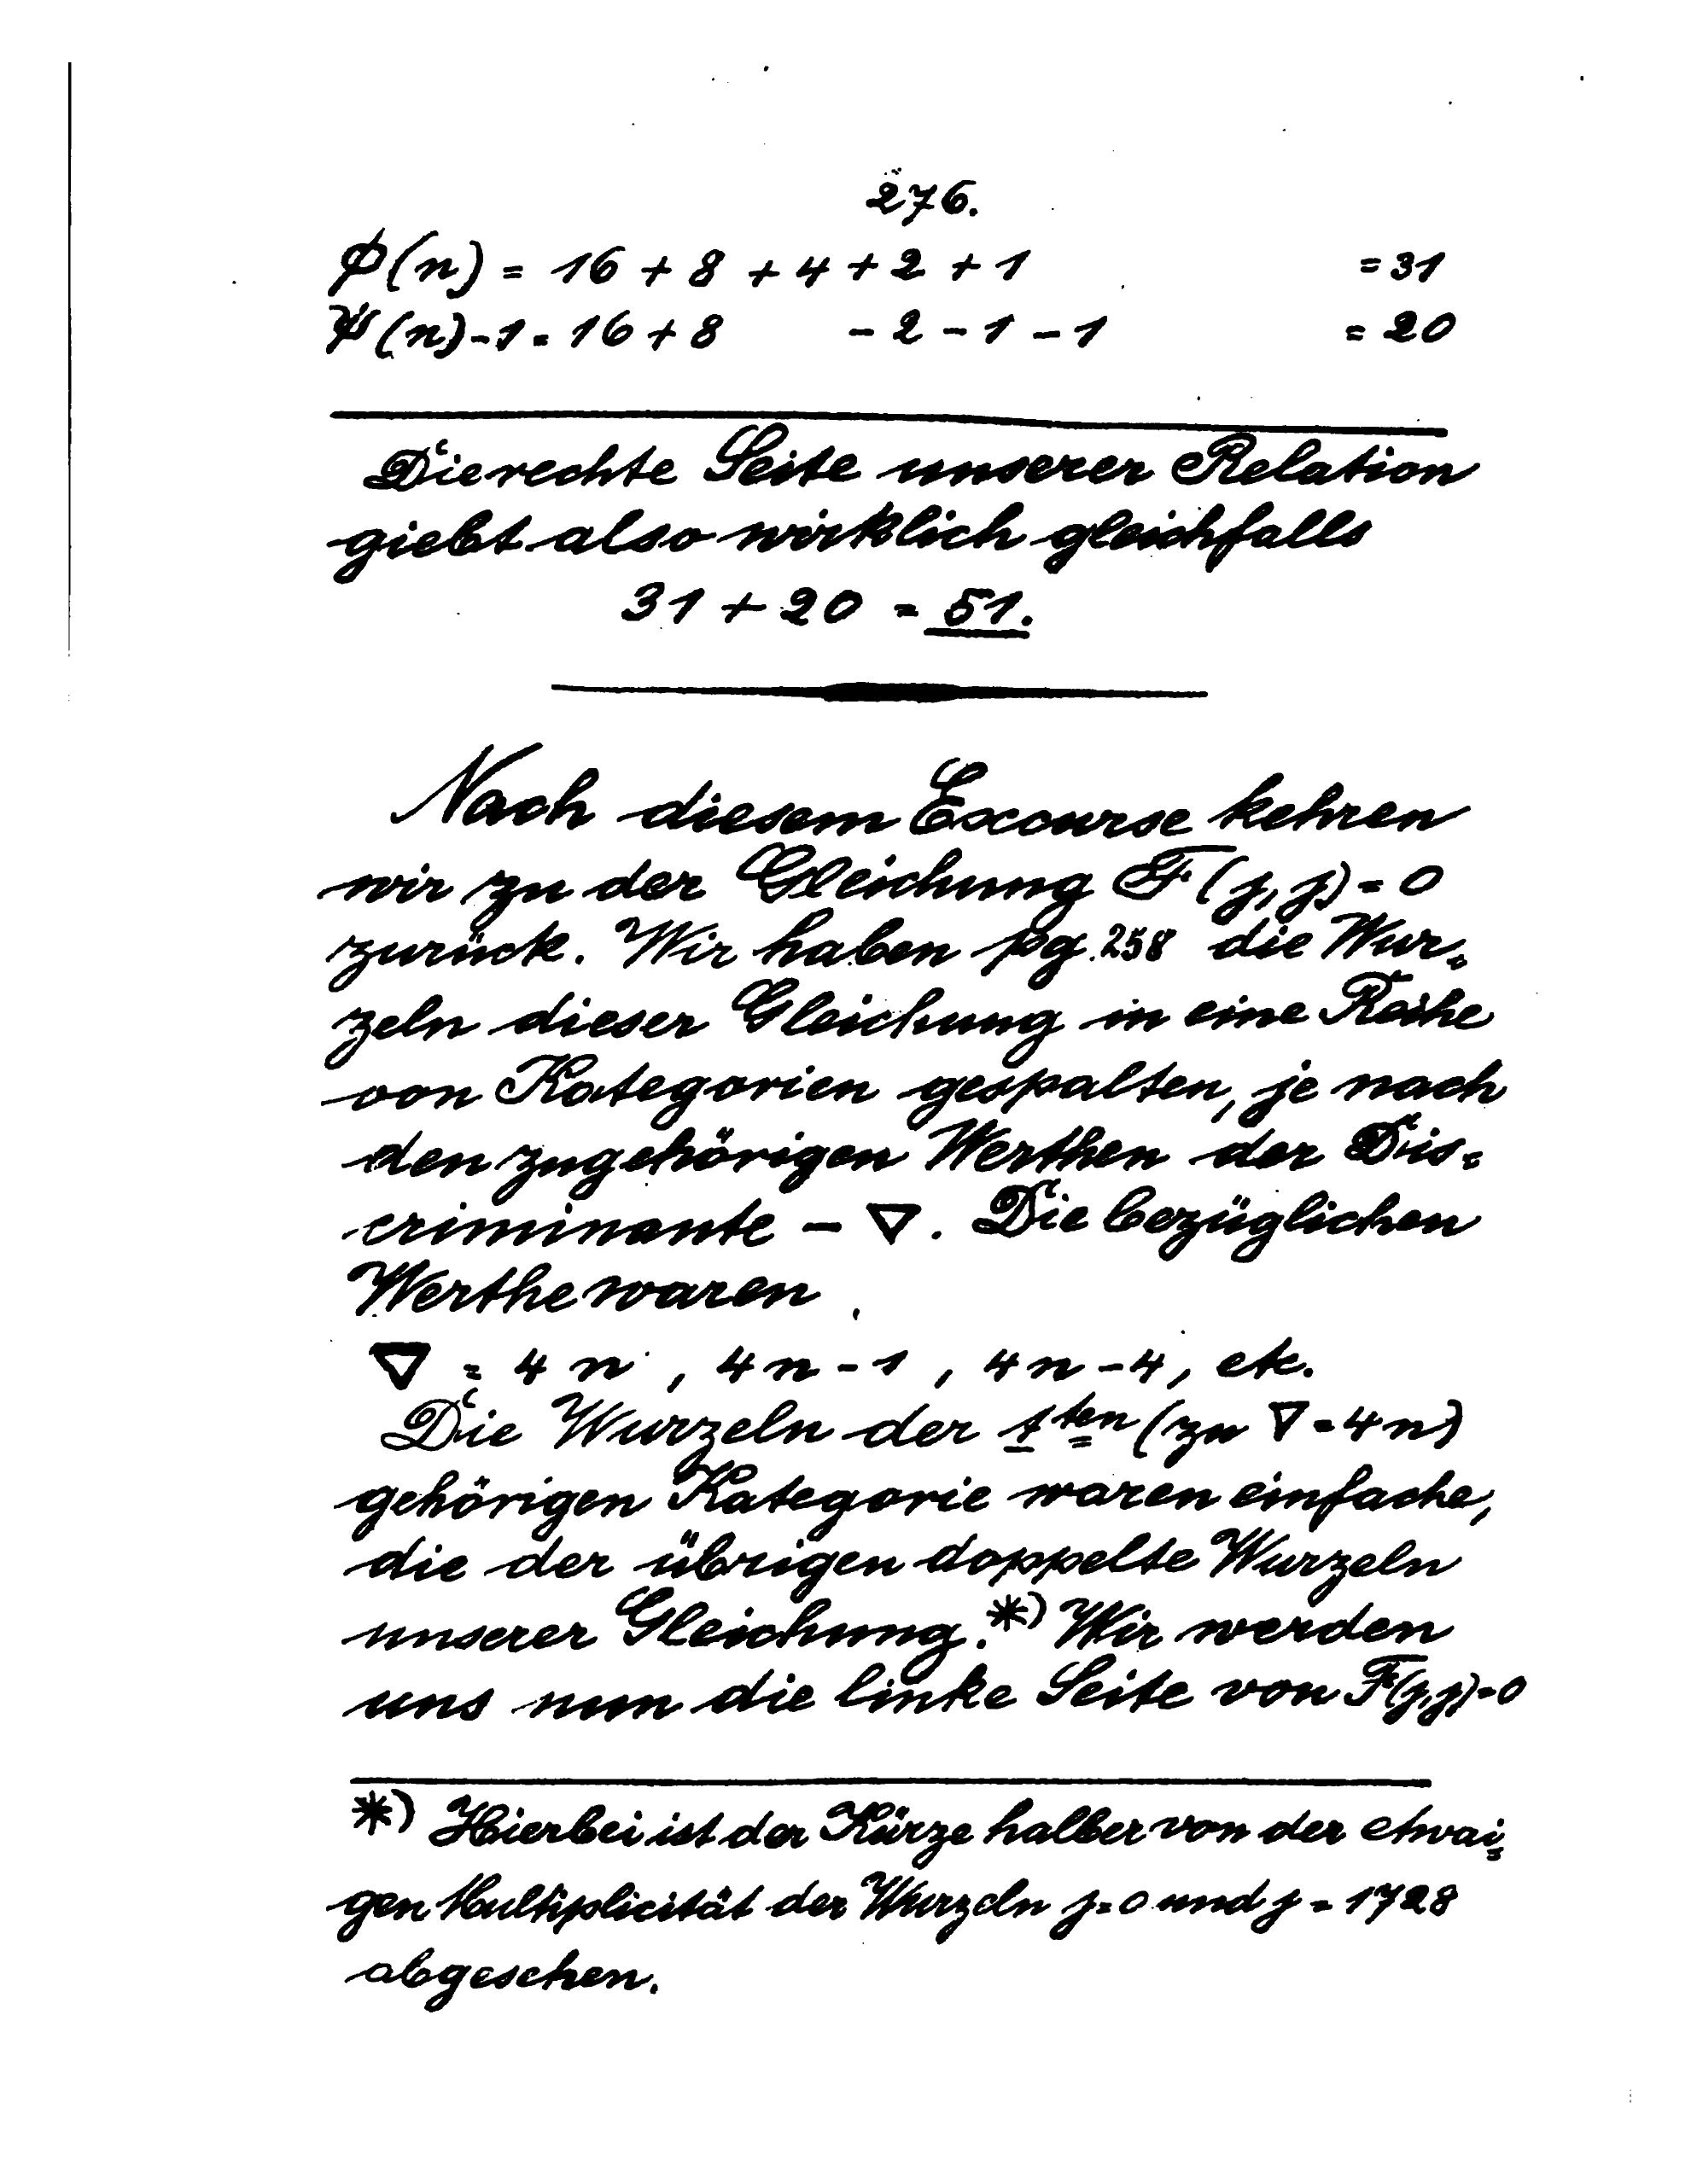 276.
Φ(n) = 16 + 8 + 4 + 2 + 1 = 31
Ψ(n)-1 = 16 + 8 - 2 - 1 - 1 = 20
Die rechte Seite unserer Relation
giebt also wirklich gleichfalls
31 + 20 = 51.
Nach diesem Excourse kehren
wir zu der Gleichung F(j,j) = 0
zurück. Wir haben pg. 258 die Wur-
zeln dieser Gleichung in eine Reihe
von Kategorien gespalten, je nach
den zugehörigen Werthen der Dis-
criminante - ∇. Die bezüglichen
Werthe waren
∇ = 4n, 4n-1, 4n-4, etc.
Die Wurzeln der 1ten (zu ∇=4n)
gehörigen Kategorie waren einfache,
die der übrigen doppelte Wurzeln
unserer Gleichung.*) Wir werden
uns nun die linke Seite von F(j,j)=0
*) Hierbei ist der Kürze halber von der etwai-
gen Multiplicität der Wurzeln j=0 und j=1728
abgesehen.